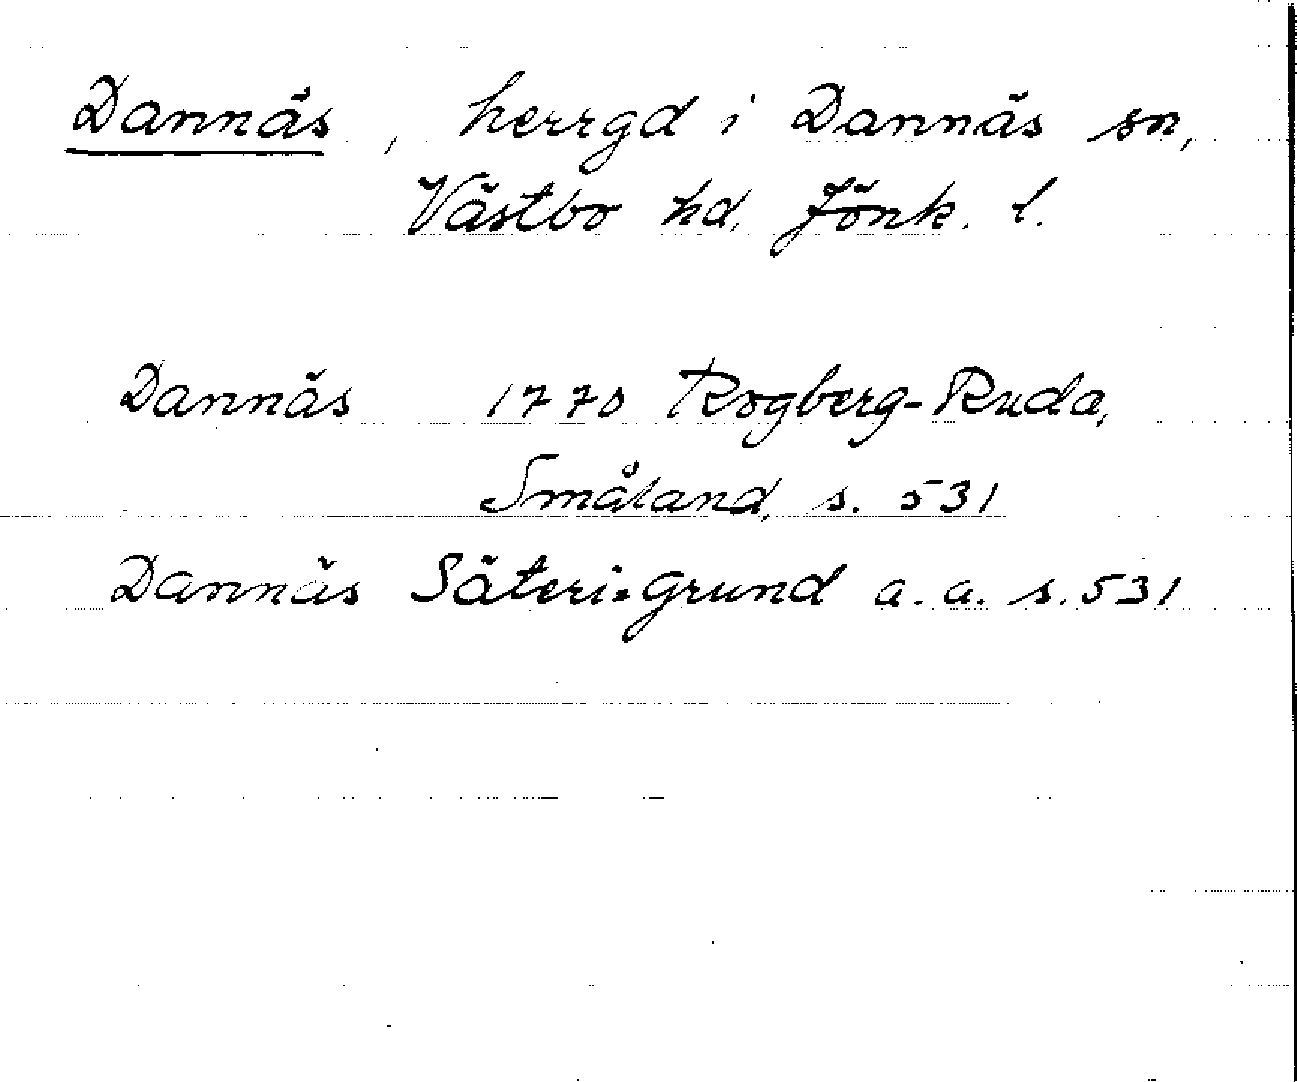 Dannäs, herrgd i Dannäs sn,
Västbo hd, Jönk. l.
Dannäs 1770 Rogberg-Ruda,
Småland, s. 531
Dannäs Säteri=grund a. a. s. 531